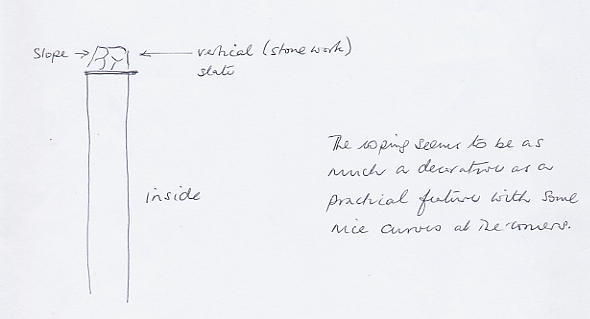 Slope
vertical (stonework)
slate
inside
The coping seems to be as
much a decorative as a
practical feature with some
nice curves at the corners.